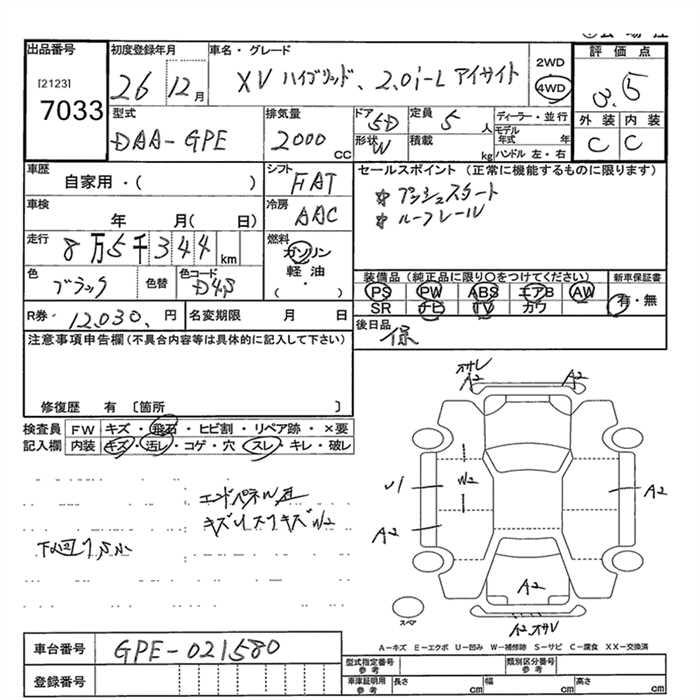 出品番号
[2123]
7033
初度登録年月
26 12月
車名・グレード
XV ハイブリッド、2.0i-L アイサイト
2WD
4WD
評価点
3.5
外装 内装
C C
型式
DAA-GPE
排気量
2000 cc
ドア 5D
形状 W
定員 5 人
積載 kg
ディーラー・並行
モデル年式 年
ハンドル 左・右
車歴
自家用・( )
シフト FAT
車検
年 月( 日)
冷房 AAC
走行
8万5千344km
燃料
ガソリン
軽油
( ・ )
色 ブラック
色替
色コード D4S
R券 12,030, 円
名変期限 月 日
セールスポイント (正常に機能するものに限ります)
プッシュスタート
ルーフレール
装備品 (純正品に限り○をつけてください)
PS PW ABS エアB AW
SR ナビ TV カワ
新車保証書
有・無
後日品
保
注意事項申告欄(不具合内容等は具体的に記入して下さい)
修復歴 有 〔箇所 〕
検査員記入欄
FW キズ・飛石・ヒビ割・リペア跡・×要
内装 キズ・汚レ・コゲ・穴・スレ・キレ・破レ
下回
スペア
サレ
A2 A2
U1 W2 A2
A2
A2
A2 サレ
A-キズ E-エクボ U-凹み W-補修跡 S-サビ C-腐食 XX-交換済
車台番号
GPE-021580
登録番号
型式指定番号 参考
類別区分番号 参考
車庫証明用 参考
長さ cm
幅 cm
高さ cm